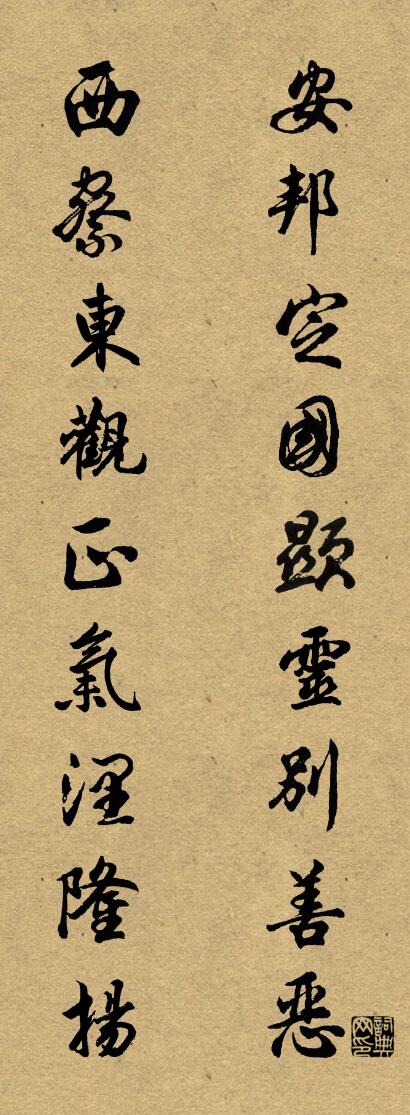 安邦定國顯靈別善惡
西察東觀正氣浬隆揚
詞典网印